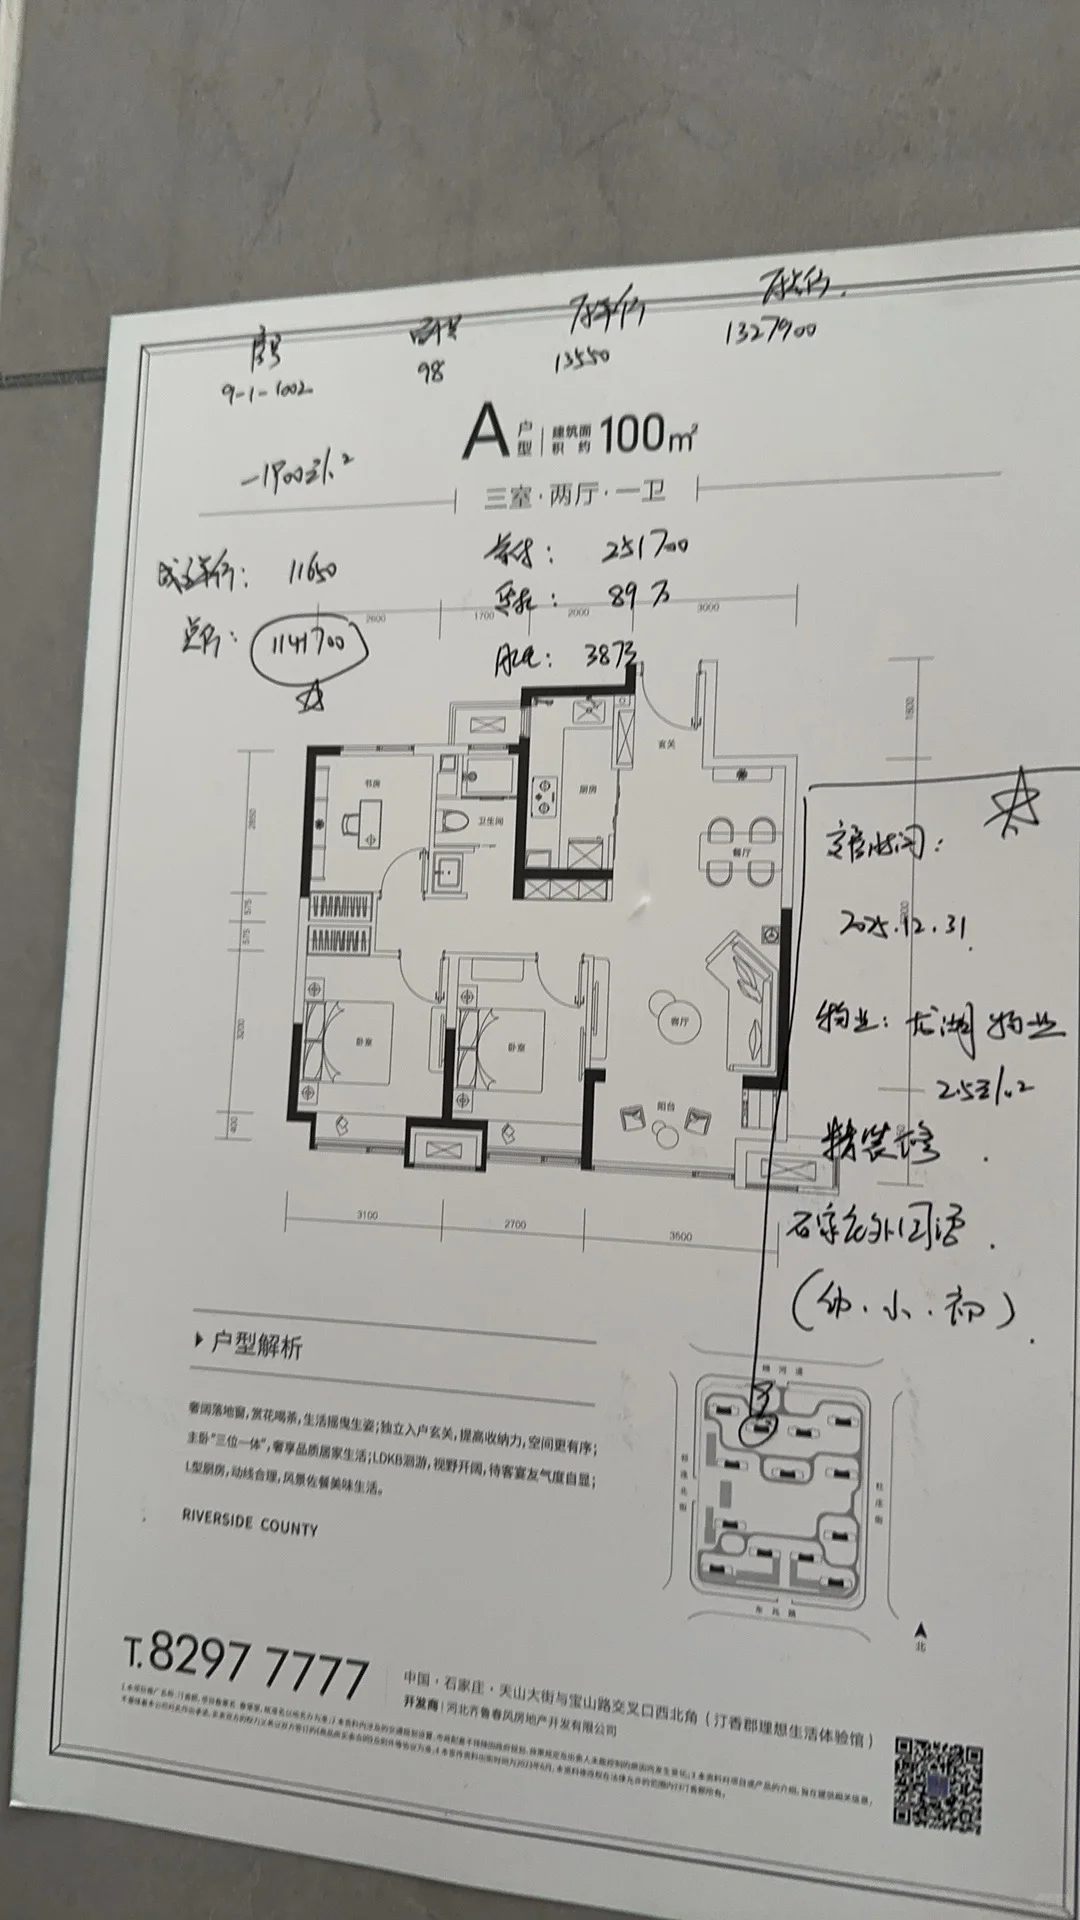 房号 面积 原单价 原总价.
9-1-1002 98 13550 1327900
A 户型 建筑面积约 100m²
-1900元/㎡
三室·两厅·一卫
成交单价: 11650
总价: 1141700
首付: 251700
贷款: 89万
月还: 3873
2600 1700 2000 3000
1800
玄关
书房
卫生间
厨房
餐厅
2850
575
575
3200
400
卧室
卧室
客厅
阳台
3100 2700 3500
交房时间:
2025.12.31.
物业: 龙湖物业
2.5元/㎡
精装修.
石家庄外国语.
(幼.小.初).
户型解析
奢阔落地窗,赏花喝茶,生活摇曳生姿;独立入户玄关,提高收纳力,空间更有序;
主卧“三位一体”,奢享品质居家生活;LDKB洄游,视野开阔,待客宴友气度自显;
L型厨房,动线合理,风景佐餐美味生活。
RIVERSIDE COUNTY
北
T.8297 7777
中国·石家庄·天山大街与宝山路交叉口西北角(汀香郡理想生活体验馆)
开发商|河北齐鲁春风房地产开发有限公司